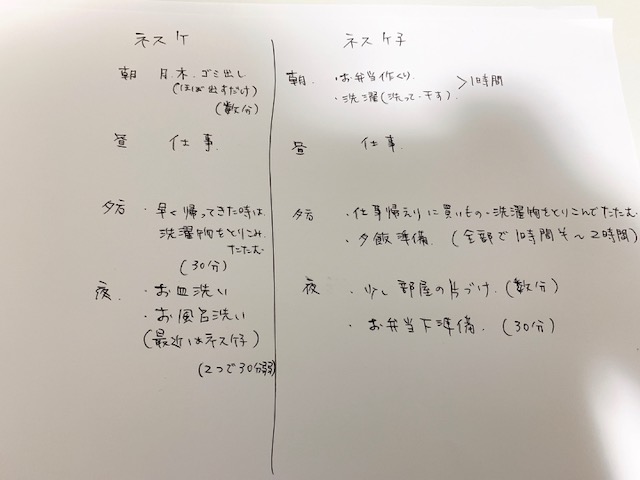 ネスケ
朝 月.木.ゴミ出し
(ほぼ出すだけ)
(数分)
昼 仕事
夕方 ・早く帰ってきた時は
洗濯物をとりこみ
たたむ
(30分)
夜 ・お皿洗い
・お風呂洗い
(最近はネスケ子)
(2つで30分弱)
ネスケ子
朝. ・お弁当作くり.
・洗濯(洗って・干す).
>1時間
昼 仕事.
夕方 ・仕事帰えりに買いもの・洗濯物をとりこんでたたむ
・夕飯準備. (全部で1時間半〜2時間)
夜 ・少し部屋の片づけ.(数分)
・お弁当下準備. (30分)